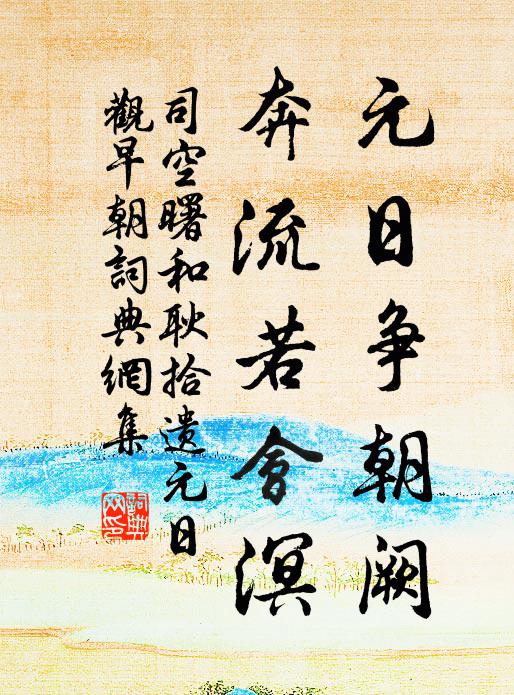 元日争朝闕
奔流若會溟
司空曙和耿拾遺元日
觀早朝詞典網集
詞典网印